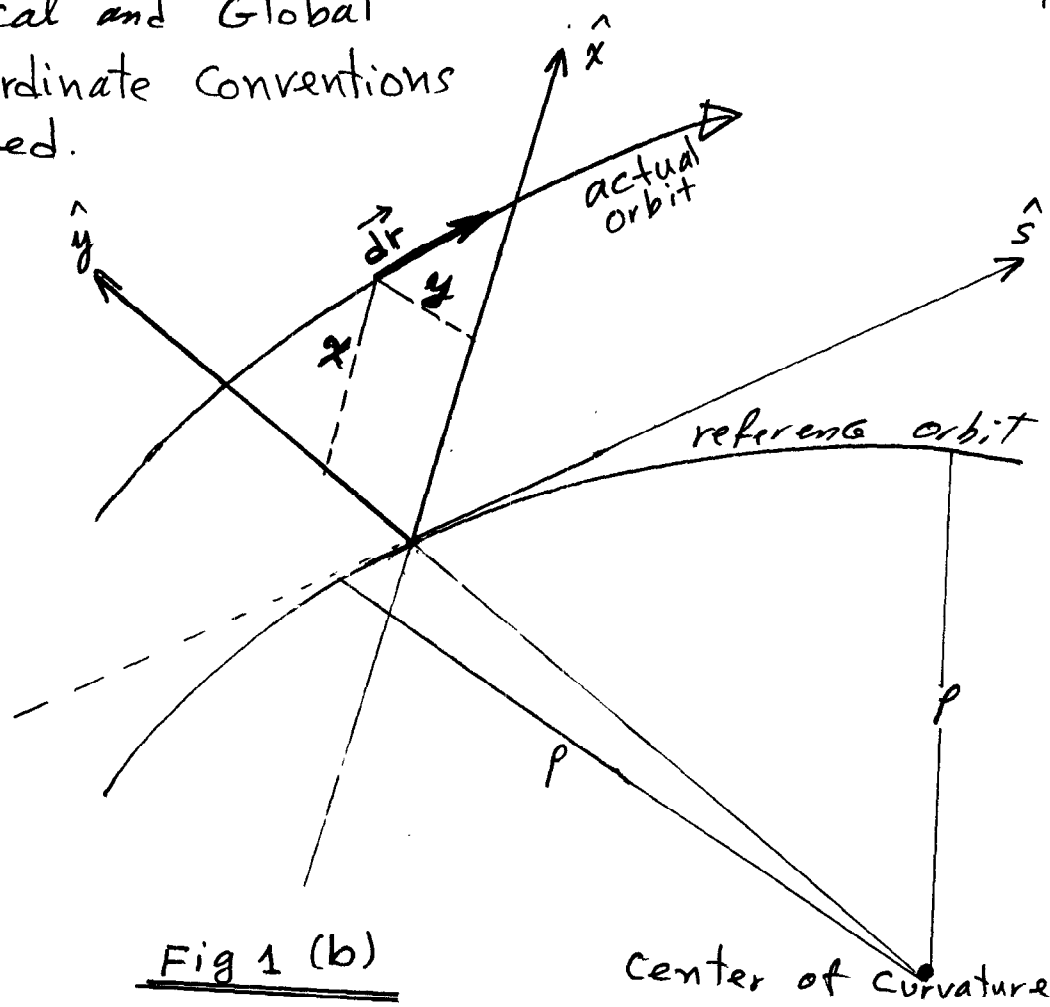 cal and Global
rdinate Conventions
ed.
x̂
actual
orbit
ŝ
ŷ
dr
y
x
reference orbit
ρ
ρ
Fig 1 (b)
Center of Curvature